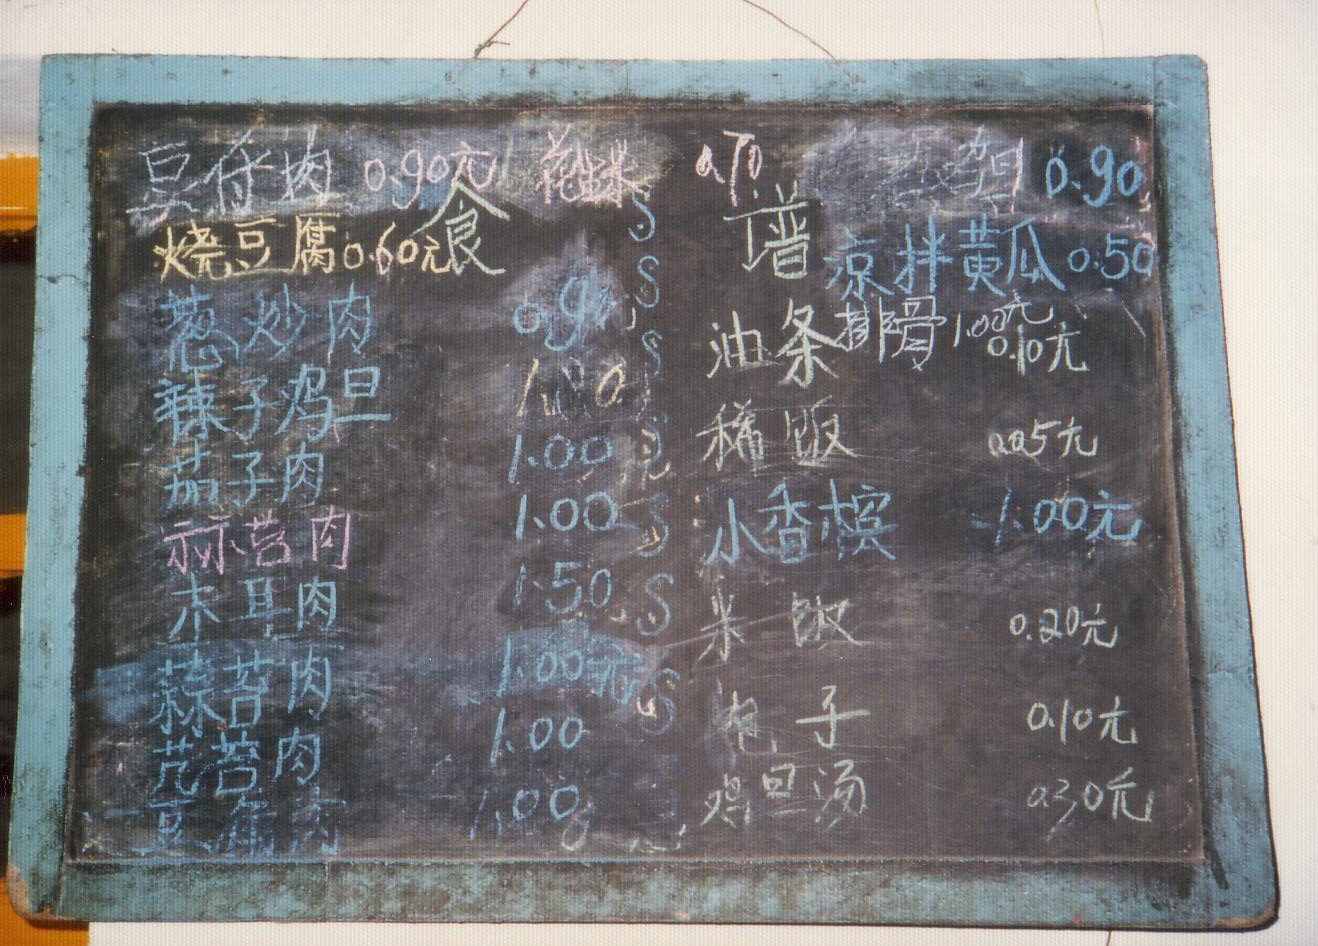 豆仔肉 0.90元 花 0.70 鸡旦 0.90
食谱
烧豆腐 0.60元
凉拌黄瓜 0.50
葱炒肉 0.90
排骨 1.00元
油条 0.10元
辣子鸡旦
茄子肉 1.00
稀饭 0.05元
蒜苔肉 1.00
小香槟 1.00元
木耳肉 1.50
米饭 0.20元
蒜苔肉 1.00元
包子 0.10元
芫苔肉 1.00
鸡旦汤 0.30元
豆 肉 1.00